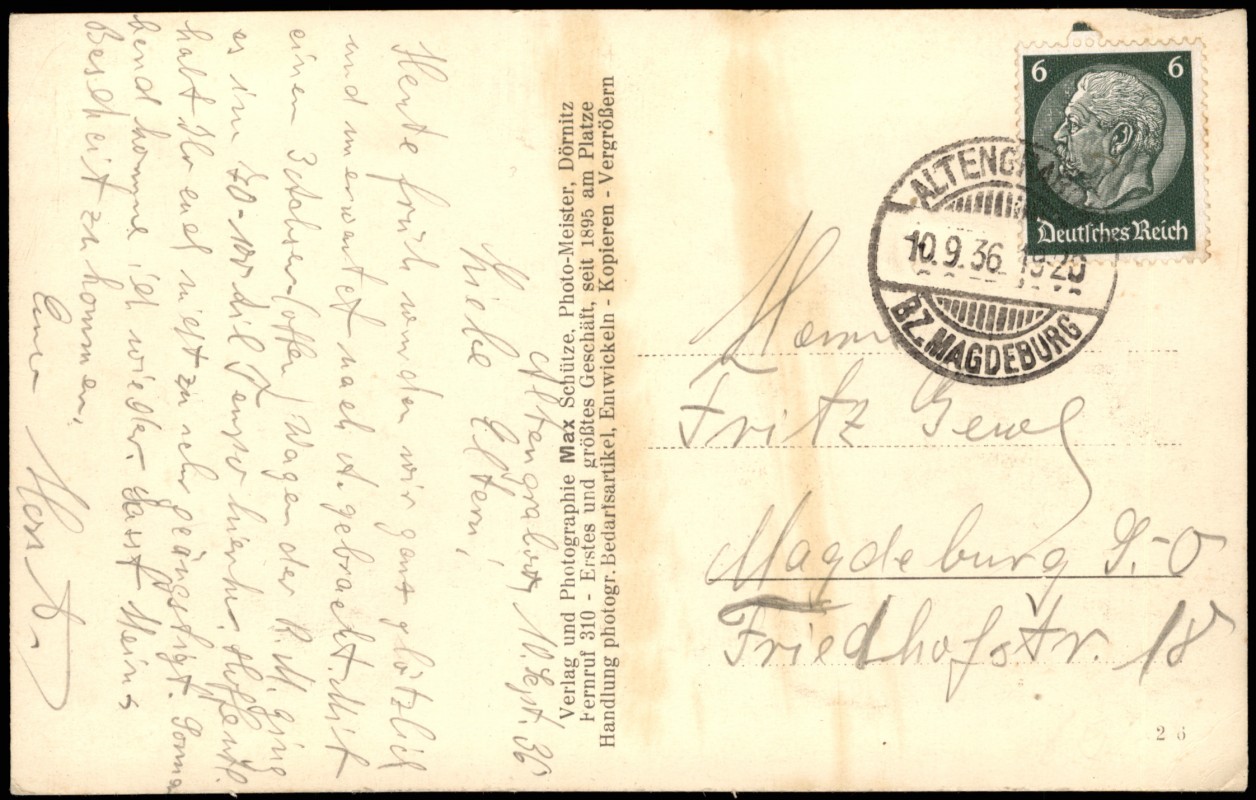 Altengrabow, 10. Sept. 36
Liebe Eltern!
Heute früh wurden wir ganz plötzlich
und unerwartet nach A. gebracht. Mit
einen 3 achsen (offen) Wagen der R.M. ging
es im Tempo hierher. Hoffentl.
habt Ihr euch nicht zu sehr geängstigt. Sonna
bend komme ich wieder. Laust Heins
Bescheid zu kommen.
Euer Horst.
Verlag und Photographie Max Schütze, Photo-Meister, Dörnitz
Fernruf 310 - Erstes und größtes Geschäft, seit 1895 am Platze
Handlung photogr. Bedarfsartikel, Entwickeln - Kopieren - Vergrößern
6 6
Deutsches Reich
ALTENGRABOW
10.9.36 19-20
BZ. MAGDEBURG
Herrn
Fritz
Magdeburg S.-O
Friedhofstr. 18
26